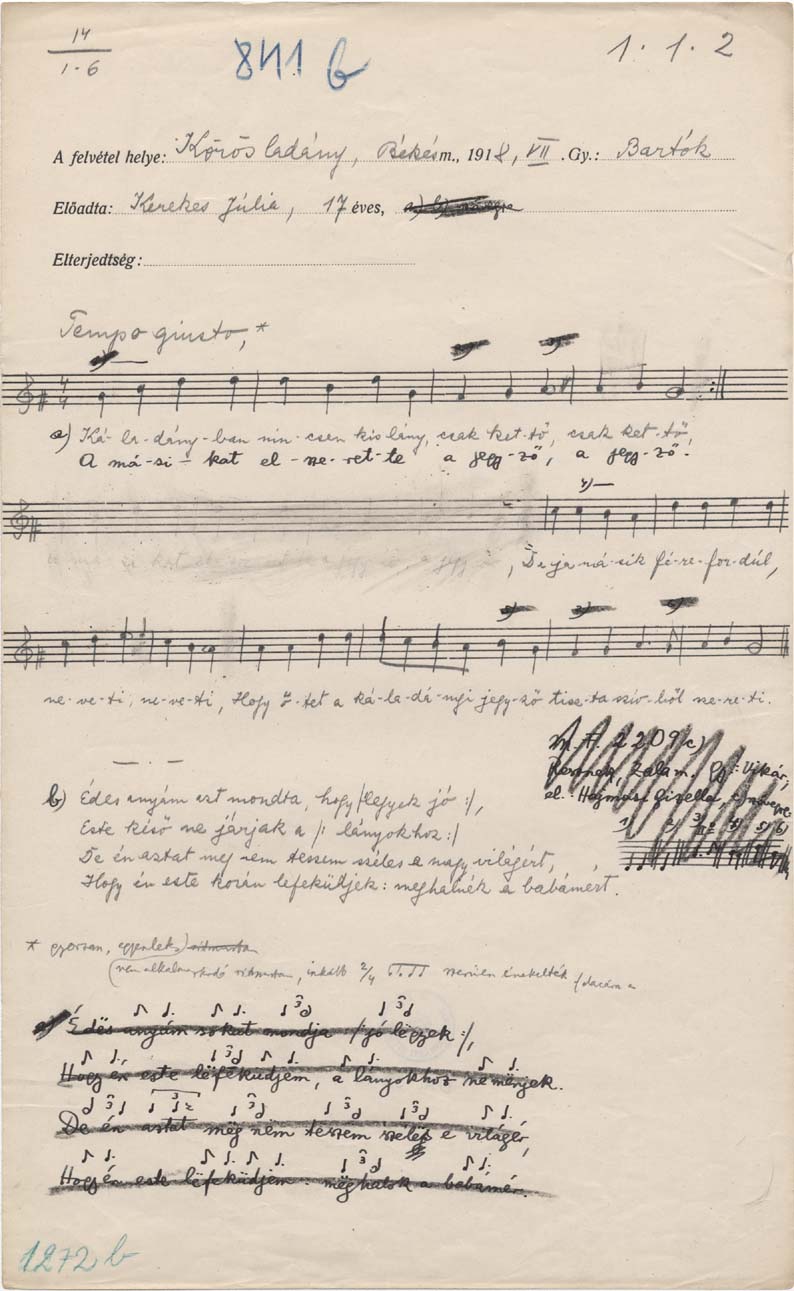 14
1-6
841 b
1. 1. 2
A felvétel helye: Körösladány, Békés m., 1918, VII. Gy.: Bartók
Előadta: Kerekes Júlia, 17 éves,
Elterjedtség:
Tempo giusto, *
4/4
a) Ká-la-dány-ban nin-csen kis lány, csak ket-tő, csak ket-tő,
A má-si-kat el-ne-ret-te a jegy-ző, a jegy-ző.
4)
, De ja má-sik fé-re-for-dúl,
5) 3) 6)
ne-ve-ti, ne-ve-ti, Hogy ő-tet a ká-la-dá-nyi jegy-ző tisz-ta szív-ből sze-re-ti.
M. F. 2209c)
Zalam. Gy: Vikár,
el. Hajmási Gizella,
1) 2) 3) 4) 5) 6)
b) Édes anyám azt mondta, hogy /: legyek jó :/,
Este késő ne járjak a /: lányokhoz :/
De én aztat meg nem teszem széles e nagy világért,
Hogy én este korán lefeküdjek: meghalnék a babámért.
* gyorsan, egyenlek,) ritmusba
(nem alkalmazkodó ritmusban, inkább 2/4 szerűen énekelték
a) Édës anyám sokat mondja /: jó légyek :/,
Hogy én este lëfeküdjem, a lányokhoz ne mënjek.
De én aztat mëg nëm teszem szélës e világér,
Hogy én este lëfeküdjem: mëghalok a babámér.
1272 b